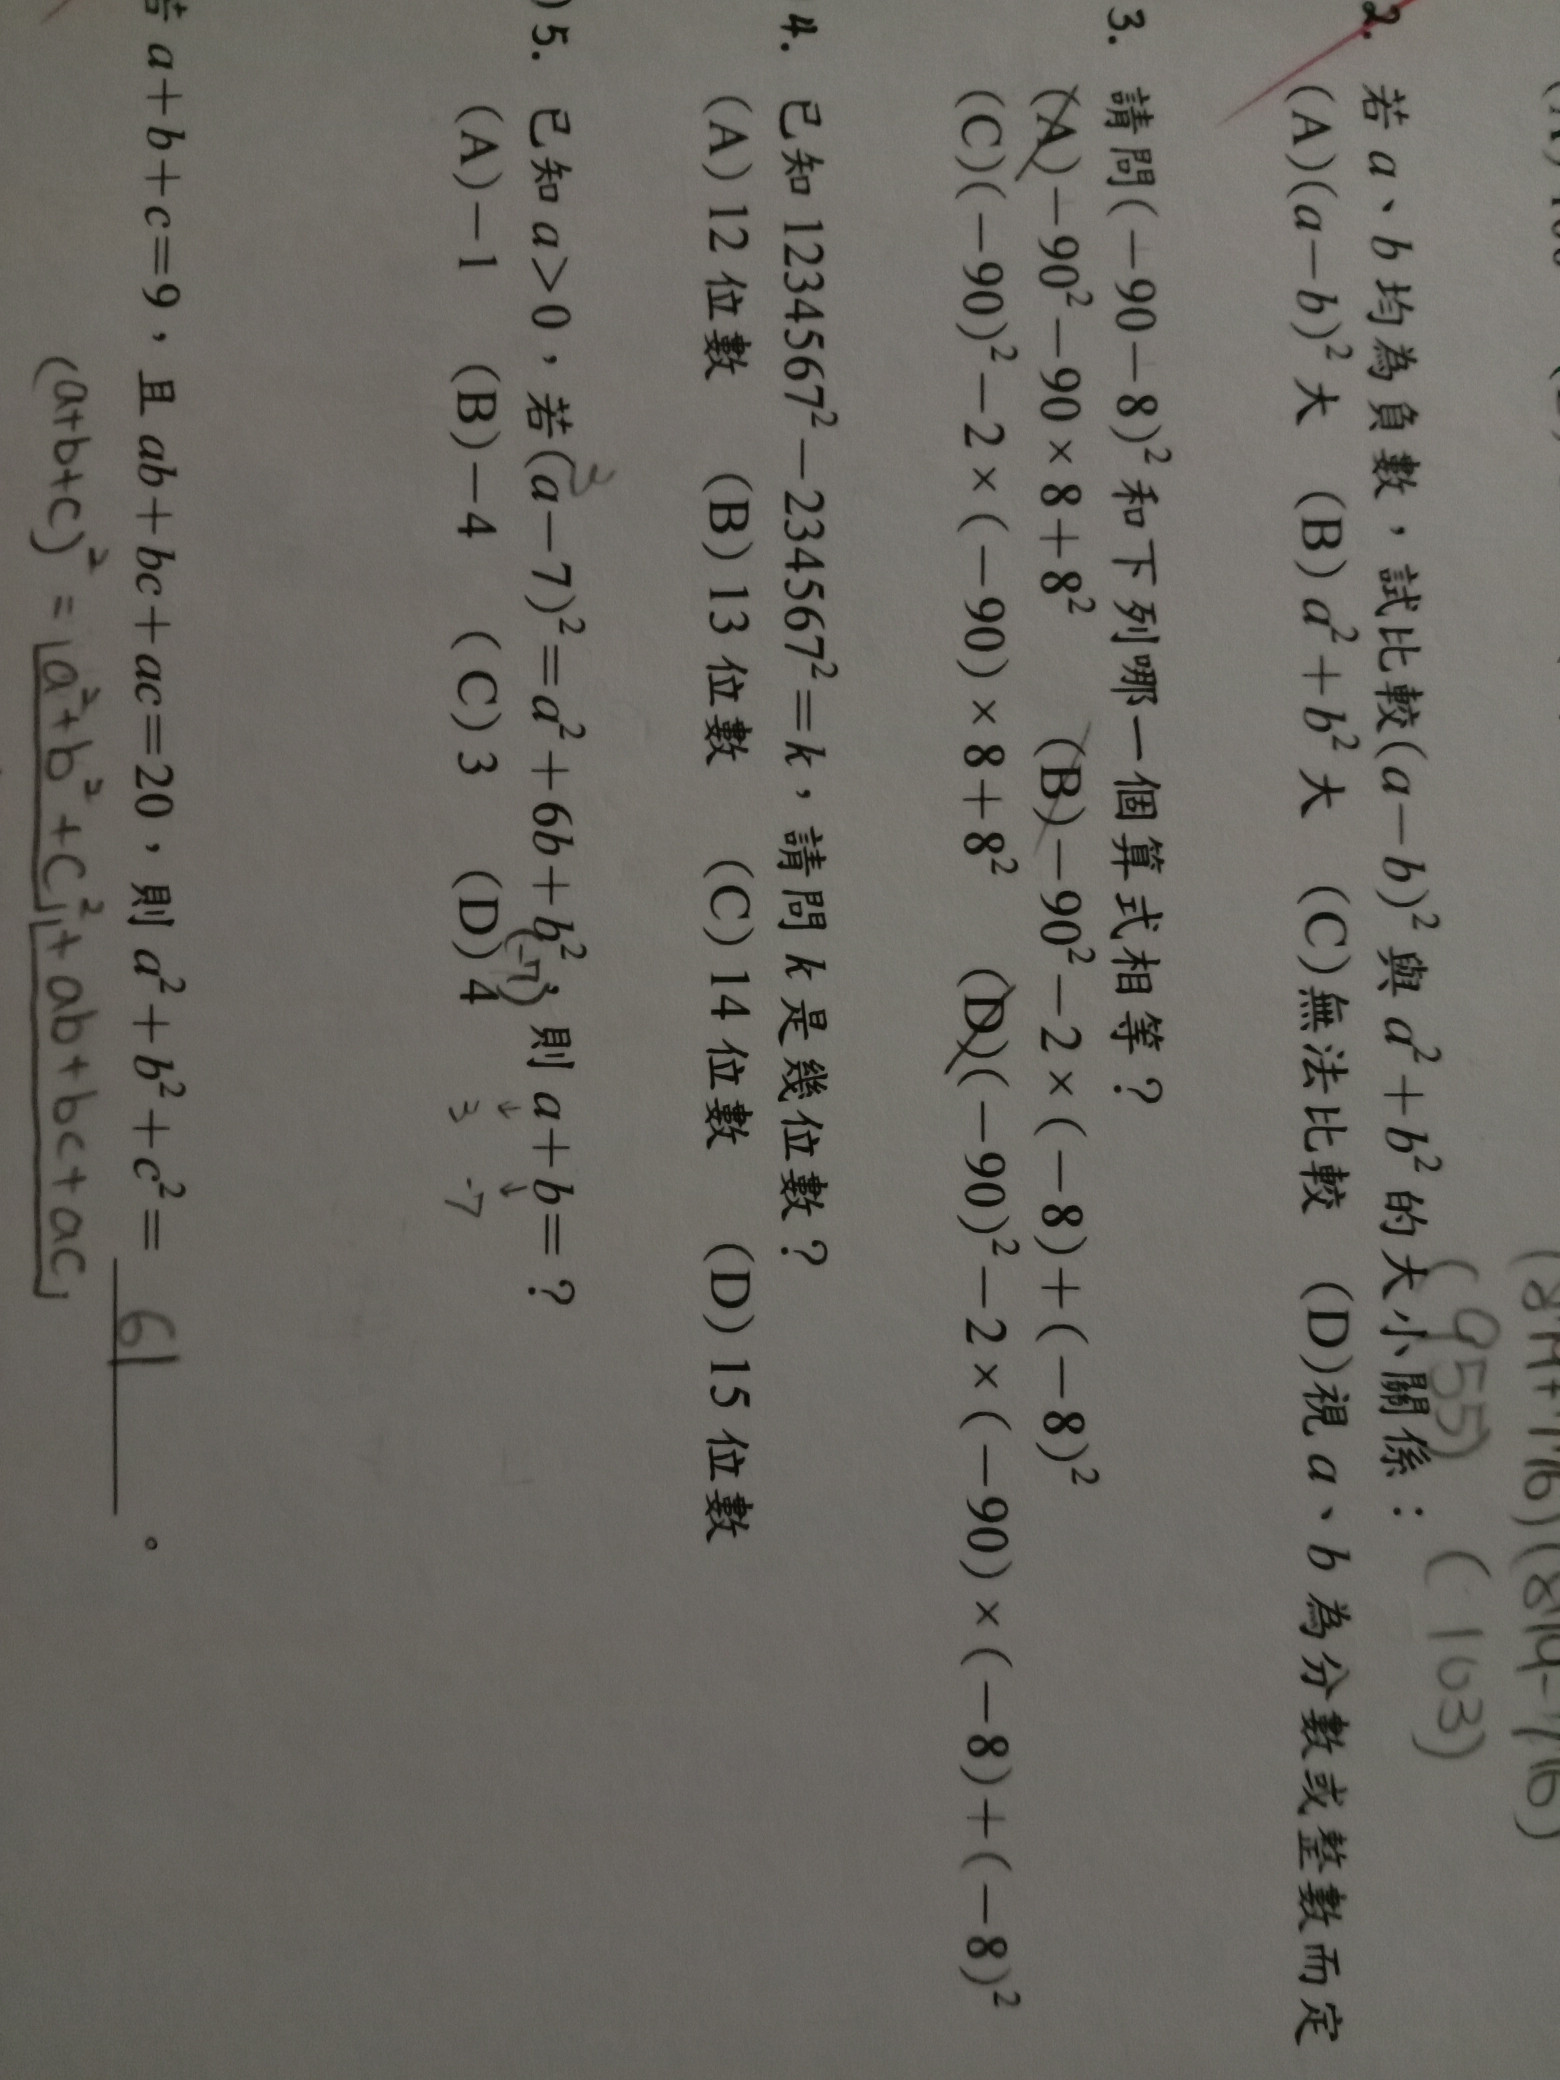 (814+116)(814-116)
(955) (103)
2. 若a、b均為負數，試比較(a－b)²與a²＋b²的大小關係：
(A)(a－b)²大 (B)a²＋b²大 (C)無法比較 (D)視a、b為分數或整數而定
3. 請問(－90－8)²和下列哪一個算式相等？
(A)－90²－90×8＋8² (B)－90²－2×(－8)＋(－8)²
(C)(－90)²－2×(－90)×8＋8² (D)(－90)²－2×(－90)×(－8)＋(－8)²
4. 已知1234567²－234567²＝k，請問k是幾位數？
(A)12位數 (B)13位數 (C)14位數 (D)15位數
)5. 已知a>0，若(a－7)²＝a²＋6b＋b²，則a＋b＝？
3 (-7)
(A)－1 (B)－4 (C)3 (D)4
↓ ↓
3 -7
若a＋b＋c＝9，且ab＋bc＋ac＝20，則a²＋b²＋c²＝ 61 。
(a+b+c)² = a²+b²+c²+ab+bc+ac